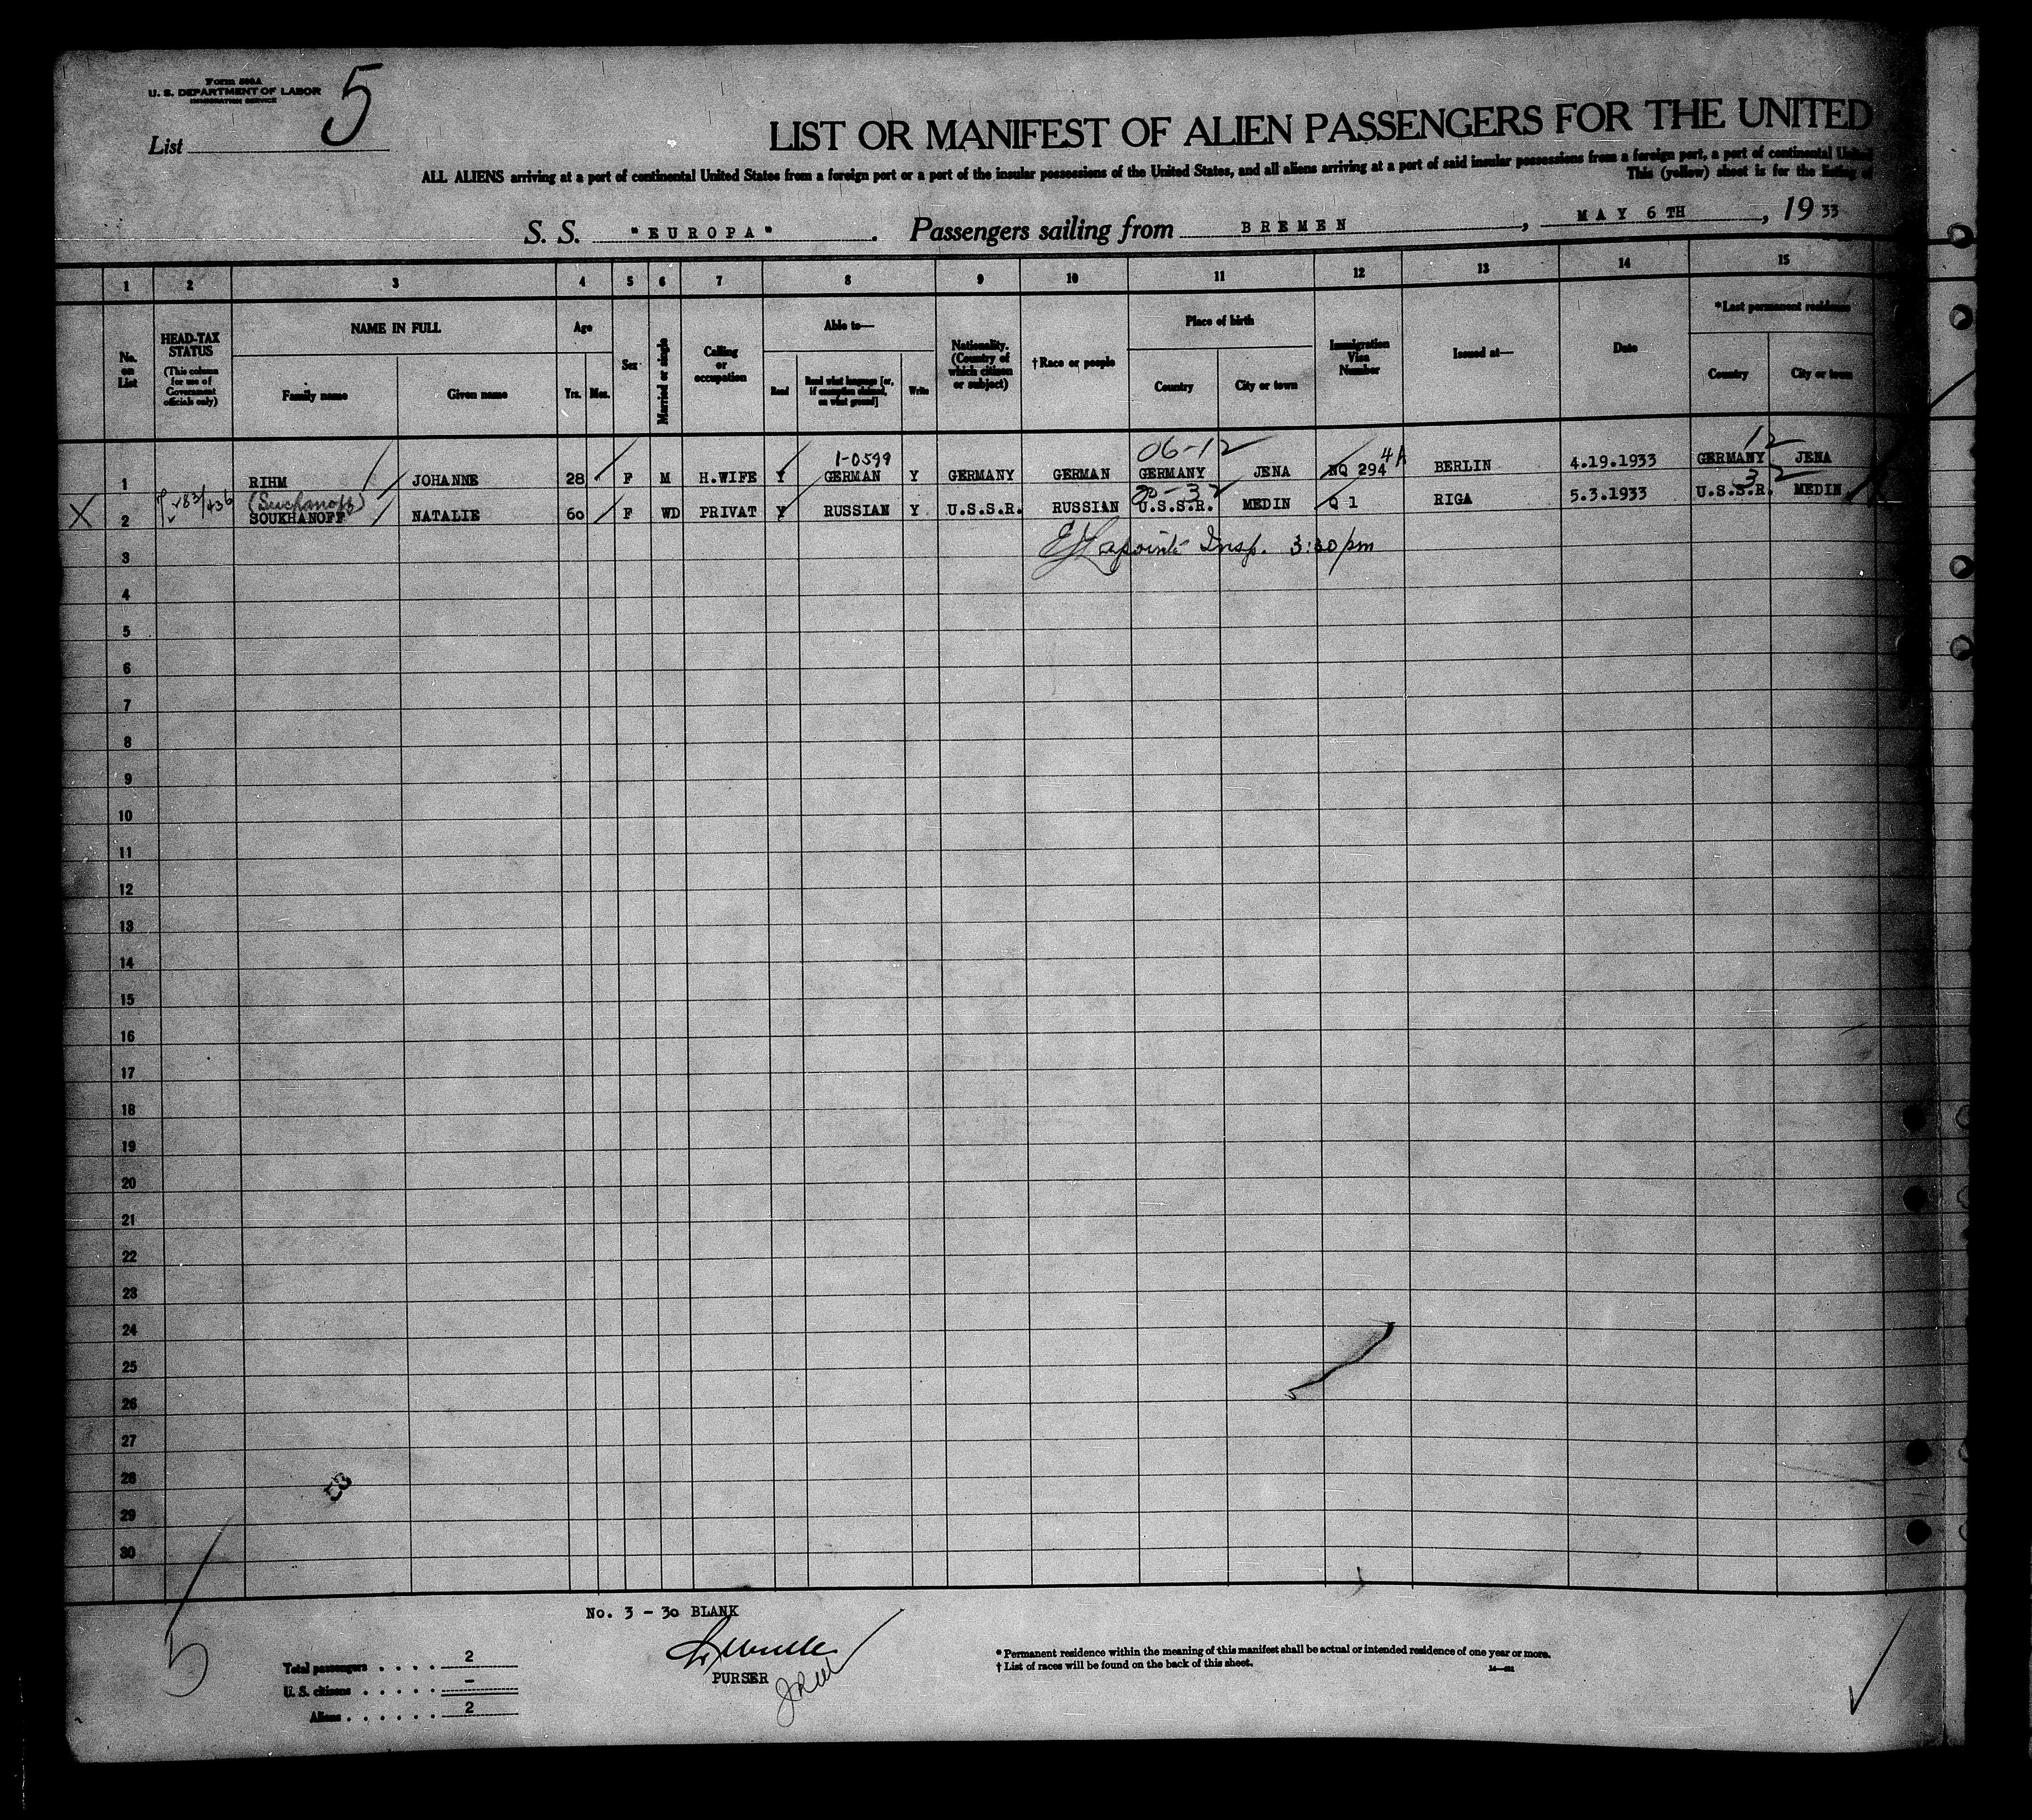 Form 500A
U. S. DEPARTMENT OF LABOR
IMMIGRATION SERVICE
List 5
LIST OR MANIFEST OF ALIEN PASSENGERS FOR THE UNITED
ALL ALIENS arriving at a port of continental United States from a foreign port or a port of the insular possessions of the United States, and all aliens arriving at a port of said insular possessions from a foreign port, a port of continental United
This (yellow) sheet is for the listing of
S. S. "EUROPA". Passengers sailing from BREMEN, MAY 6 TH, 19 33
1 2 3 4 5 6 7 8 9 10 11 12 13 14 15
No. on List
HEAD-TAX STATUS (This column for use of Government officials only)
NAME IN FULL
Family name Given name
Age
Yrs. Mos.
Sex
Married or single
Calling or occupation
Able to—
Read Read what language [or, if exemption claimed, on what ground] Write
Nationality. (Country of which citizen or subject)
†Race or people
Place of birth
Country City or town
Immigration Visa Number
Issued at—
Date
*Last permanent residence
Country City or town
1-0599 06-12 4A 12
1 RIHM JOHANNE 28 F M H.WIFE Y GERMAN Y GERMANY GERMAN GERMANY JENA NQ 294 BERLIN 4.19.1933 GERMANY JENA
X (Suchanoff) 32
2 SOUKHANOFF NATALIE 60 F WD PRIVAT Y RUSSIAN Y U.S.S.R. RUSSIAN U.S.S.R. MEDIN Q 1 RIGA 5.3.1933 U.S.S.R. MEDIN
3 Lapointe Insp. 3:30 pm
4
5
6
7
8
9
10
11
12
13
14
15
16
17
18
19
20
21
22
23
24
25
26
27
28
53
29
30
No. 3 - 30 BLANK
5
Total passengers . . . . 2
U. S. citizens . . . . . -
Aliens . . . . . . 2
PURSER
* Permanent residence within the meaning of this manifest shall be actual or intended residence of one year or more.
† List of races will be found on the back of this sheet.